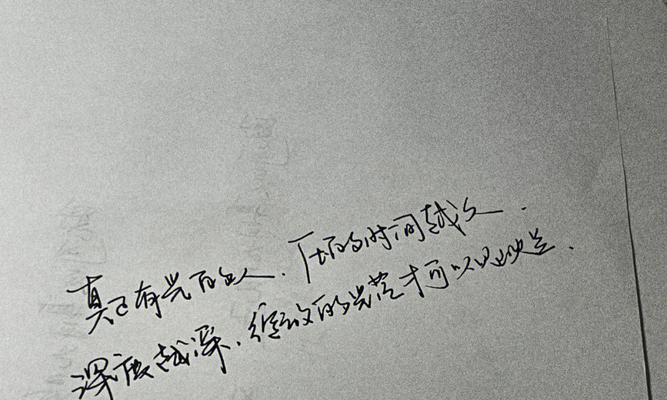 真正有光的人.压的时间越久.
深度越深.绽放的光芒才可以更